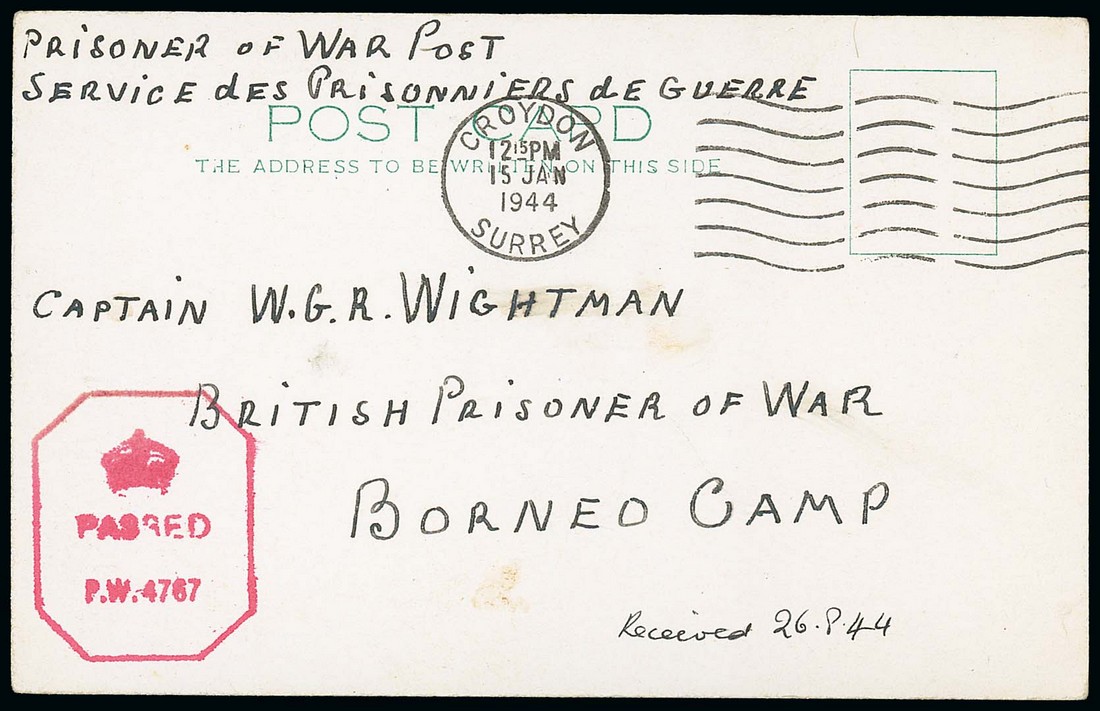 PRISONER OF WAR POST
SERVICE des PRISONNIERS de GUERRE
POST CARD
THE ADDRESS TO BE WRITTEN ON THIS SIDE
CROYDON
12 15 PM
15 JAN
1944
SURREY
CAPTAIN W.G.R. WIGHTMAN
BRITISH PRISONER OF WAR
BORNEO CAMP
PASSED
P.W. 4767
Received 26.8.44